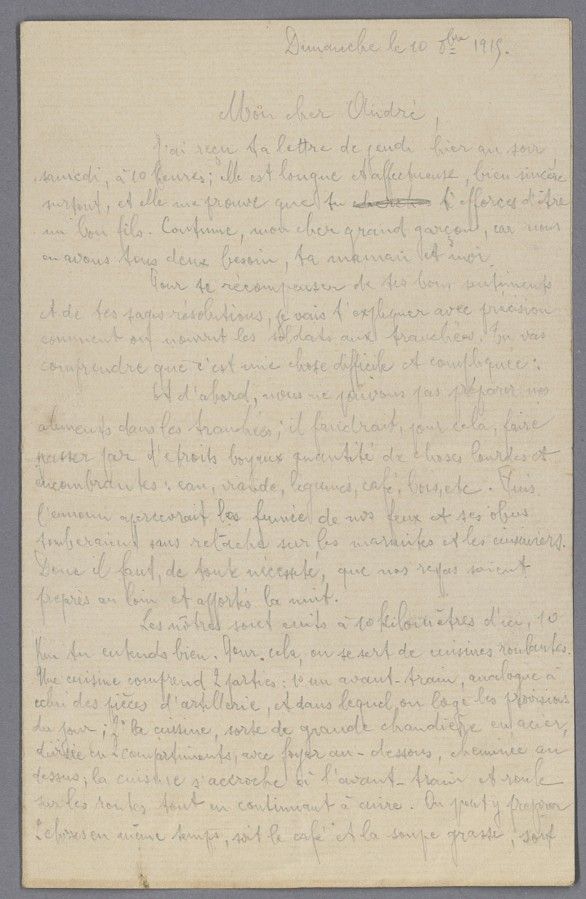 Dimanche le 10 8bre 1915.
Mon cher André,
J'ai reçu ta lettre de jeudi hier au soir
samedi, à 10 heures; elle est longue et affectueuse, bien sincère
surtout, et elle me prouve que tu t'efforces d'être
un bon fils. Continue, mon cher grand garçon, car nous
en avons tous deux besoin, ta maman et moi.
Pour te recompenser de tes bons sentiments
et de tes sages résolutions, je vais t'expliquer avec précision
comment on nourrit les soldats aux tranchées. Tu vas
comprendre que c'est une chose difficile et compliquée:
Et d'abord, nous ne pouvons pas préparer nos
aliments dans les tranchées; il faudrait, pour cela, faire
passer par d'étroits boyaux quantité de choses lourdes et
encombrantes: eau, viande, légumes, café, bois, etc. Puis
l'ennemi apercevrait la fumée de nos feux et ses obus
tomberaient sans relâche sur les marmites et les cuisiniers.
Donc il faut, de toute necessité, que nos repas soient
préparés au loin et apportés la nuit.
Les nôtres sont cuits à 10 kilomètres d'ici, 10
Km tu entends bien. Pour cela, on se sert de cuisines roulantes.
Une cuisine comprend 2 parties: 1º un avant-train, analogue à
celui des pièces d'artillerie, et dans lequel on loge les provisions
du jour; 2º la cuisine, sorte de grande chaudière en acier,
divisée en 2 compartiments, avec foyer au-dessous, cheminée au
dessus; la cuisine s'accroche à l'avant-train et roule
sur les routes tout en continuant à cuire. On peut y préparer
2 choses en même temps, soit le café et la soupe grasse, soit